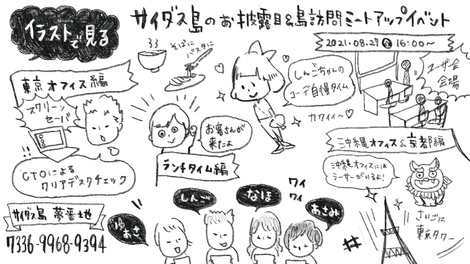 イラストで見る
サイダス島のお披露目&島訪問ミートアップイベント
2021.08.27 金 16:00〜
東京オフィス編
スクリーン
セーバー
CTOによる
クリアデスクチェック
サイダス島 夢番地
7336-9968-9394
そばに
パスタに
お客さんが
来たよ
ランチタイム編
しんごちゃんの
コーデ自慢タイム
カワイイ〜
ユーザ会
会場
沖縄オフィス&京都編
沖縄オフィスには
シーサーがいるよ!
さいごに
東京タワー
ゆあさ
しんご
なほ
あさみ
ワイ
ワイ